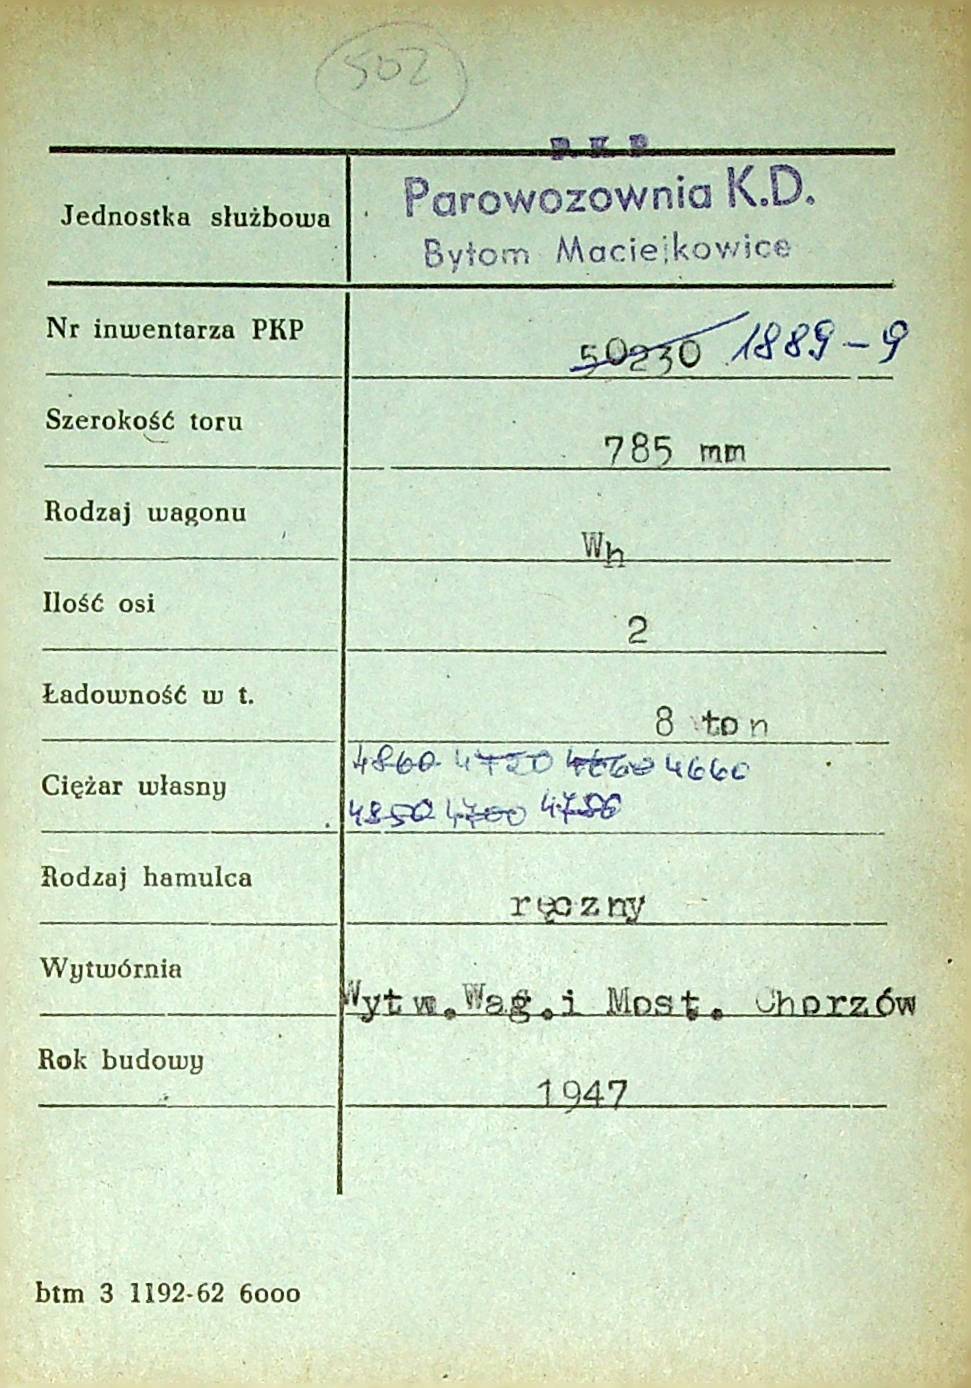 502
P.K.P.
Jednostka służbowa Parowozownia K.D.
Bytom Maciejkowice
Nr inwentarza PKP 50230 1889-9
Szerokość toru 785 mm
Rodzaj wagonu Wh
Ilość osi 2
Ładowność w t. 8 ton
Ciężar własny 4860 4720 4660
4850 4700 4780
Rodzaj hamulca ręczny
Wytwórnia Wytw.Wag.i Most. Chorzów
Rok budowy 1947
btm 3 1192-62 6000